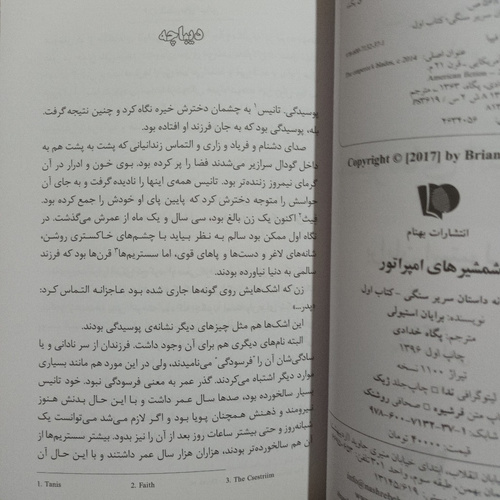 دیباچه
پوسیدگی. تانیس¹ به چشمان دخترش خیره نگاه کرد و چنین نتیجه گرفت.
بله، پوسیدگی بود که به جان فرزند او افتاده بود.
صدای دشنام و فریاد و زاری و التماس زندانیانی که پشت به پشت هم به
داخل گودال سرازیر می‌شدند فضا را پر کرده بود. بوی خون و ادرار در آن
گرمای نیمروز زننده‌تر بود. تانیس همه‌ی اینها را نادیده گرفت و به جای آن
حواسش را متوجه دخترش کرد که پایین پای او خودش را جمع کرده بود.
فیث² اکنون یک زن بالغ بود، سی سال و یک ماه از عمرش می‌گذشت. در
نگاه اول ممکن بود سالم به نظر بیاید با چشم‌های خاکستری روشن،
شانه‌های لاغر و دست‌ها و پاهای قوی، اما سستریم‌ها³ قرن‌ها بود که فرزند
سالمی به دنیا نیاورده بودند.
زن که اشک‌هایش روی گونه‌ها جاری شده بود عاجزانه التماس کرد:
«پدر...»
این اشک‌ها هم مثل چیزهای دیگر نشانه‌ی پوسیدگی بودند.
البته نام‌های دیگری هم برای آن وجود داشت. فرزندان از سر نادانی و یا
سادگی‌شان آن را "فرسودگی" می‌نامیدند، ولی در این مورد هم مانند بسیاری
موارد دیگر اشتباه می‌کردند. گذر عمر به معنی فرسودگی نبود. خود تانیس
بسیار سالخورده بود، صدها سال عمر داشت و با این حال بدنش هنوز
نیرومند و ذهنش همچنان پویا بود و اگر لازم می‌شد می‌توانست یک
شبانه‌روز و حتی بیشتر ساعات روز بعد از آن را نیز بدود. بیشتر سستریم‌ها از
آن هم سالخورده‌تر بودند، هزاران هزار سال عمر داشتند و با این حال آن
1. Tanis 2. Faith 3. The Csestriim
عنوان اصلی:
The emperor's blades, c 2014
American fiction
Copyright © [2017] by Brian
انتشارات بهنام
شمشیرهای امپراتور
داستان سریر سنگی - کتاب اول
نویسنده: برایان استیولی
مترجم: پگاه خدادی
چاپ اول ۱۳۹۶
تیراژ ۱۱۰۰ نسخه
لیتوگرافی ندا چاپ‌جلد ژیک
چاپ متن فرشیوه صحافی روشنک
۹۷۸-۶۰۰-۷۱۳۲-۳۷-۱
۴۰۰۰۰ تومان